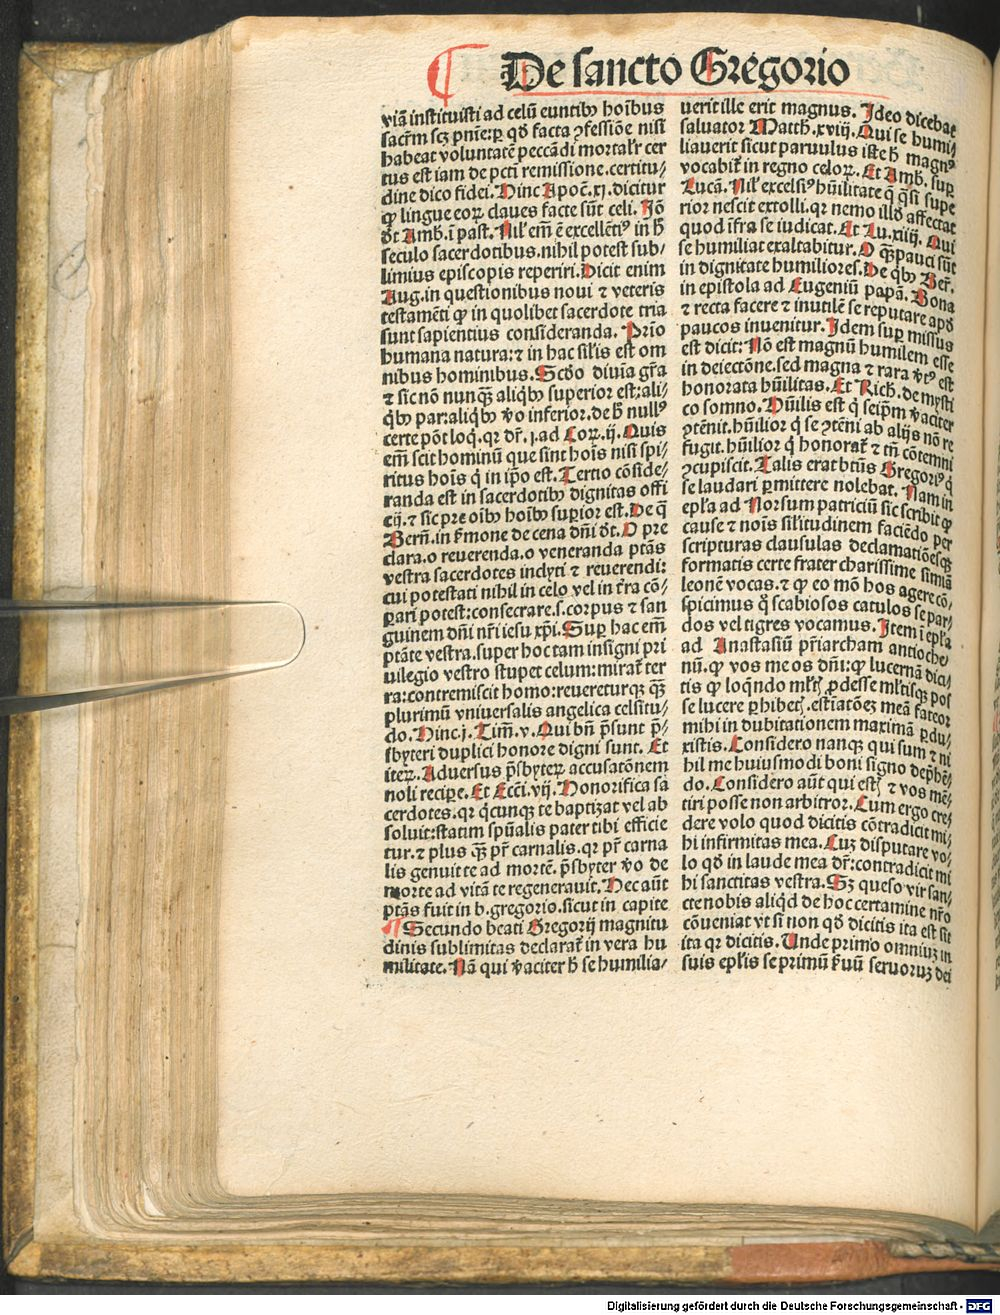 De sancto Gregorio
viā instituisti ad celū euntibꝫ hoībus
sacr̄m scꝫ pn̄ie:ꝑ qď facta ꝯfessiōe nisi
habeat voluntatē peccādi mortal'r cer
tus est iam de pctī remissione.certitu/
dine dico fidei. Hinc Apoc̄.xj. dicitur
ꝙ lingue eoꝝ claues facte sūt celi. Iō
ďt Amb. ī past. Nil' em̄ ē excellēti⁹ in ħ
seculo sacerdotibus.nihil potest sub/
limius episcopis reperiri. Dicit enim
Aug. in questionibus noui ⁊ veteris
testamēti ꝙ in quolibet sacerdote tria
sunt sapientius consideranda. Prīo
humana natura:⁊ in hac sil'is est om
nibus hominibus. Scďo diuīa gr̄a
⁊ sic nō nunqꝫ̄ aliqb̄ꝫ superior est:ali/
qb̄ꝫ par:aliqb̄ꝫ v̄o inferior.de ħ null⁹
certe pōt loq̄. qr dr̄. j.ad Coꝝ. ij. Quis
em̄ scit hominū que sint hoīs nisi spi/
ritus hoīs q̇ in ip̄o est. Tertio cōside/
randa est in sacerdotibꝫ dignitas offi
cij. ⁊ sic pre oībꝫ hoībꝫ suꝑior est. De q̄
Bern̄. in ẜmone de cena dn̄i ďt. O pre
clara.o reuerenda.o veneranda ptās
vestra sacerdotes inclyti ⁊ reuerendi:
cui potestati nihil in celo vel in tr̄ra cō/
ꝑari potest:consecrare.s.corpus ⁊ san
guinem dn̄i nr̄i iesu xp̄i. Suꝑ hac em̄
ptāte vestra.super hoc tam insigni pri
uilegio vestro stupet celum:mirat̄ ter
ra:contremiscit homo:reueretur qꝫ qꝫ̄
plurimū vniuersalis angelica celsitu/
do. Hinc. j. Tim̄. v. Qui bn̄ p̄sunt p̄/
sbyteri duplici honore digni sunt. Et
iteꝝ. Aduersus p̄sbyteꝝ accusatōnem
noli reciꝑe. Et Ecc̄i. vij. Honorifica sa
cerdotes.qr q̇cunqꝫ te baptizat vel ab
soluit:statim spūalis pater tibi efficie
tur. ⁊ plus qꝫ̄ pr̄ carnalis.qr pr̄ carna
lis genuit te ad mortē. p̄sbyter v̄o de
morte ad vitā te regenerauit. Hec aūt
ptās fuit in b.gregorio.sicut in capite
¶ Secundo beati Gregorij magnitu
dinis sublimitas declarat̄ in vera hu
militate. Nā qui v̄aciter ħ se humilia/
uerit ille erit magnus. Ideo dicebat
saluator Matth.xviij. Qui se humi/
liauerit sicut paruulus iste ħ magn⁹
vocabit̄ in regno celoꝝ. Et Amb. suꝑ
Lucā. Nil' excelsi⁹ hūilitate q̄ q̄si supe
rior nescit extolli.qr nemo illď affectat
quod īfra se iudicat. Et Lu.xiiij. Qui
se humiliat exaltabitur. O qꝫ̄ pauci sūt
in dignitate humiliores. De qb̄ꝫ Ber̄.
in epistola ad Eugeniū papā. Bona
⁊ recta facere ⁊ inutilē se reputare apď
paucos inuenitur. Idem suꝑ missus
est dicit: Nō est magnū humilem esse
in deiectōne.sed magna ⁊ rara v̄t⁹ est
honorata hūilitas. Et Rich. de mysti
co somno. Hūilis est q̇ seip̄m v̄aciter
ꝯtēnit.hūilior q̇ se ꝯtēni ab alijs nō re
fugit.hūilior q̇ honorat̄ ⁊ tn̄ cōtemni
ꝯcupiscit. Talis erat btūs Gregori⁹ q̇
se laudari ꝑmittere nolebat. Nam in
epl'a ad Norsum patriciū sic scribit ꝙ
cause ⁊ noīs sil'itudinem faciēdo per
scripturas clausulas declamatiōesqꝫ
formatis certe frater charissime simiā
leonē vocas. ⁊ ꝙ eo mō hos agere cō/
spicimus q̇ scabiosos catulos se par/
dos vel tigres vocamus. Item ī epl'a
ad Anastasiū pr̄iarcham antioche/
nū. ꝙ vos me os dn̄i:ꝙ lucernā dici/
tis ꝙ loquēndo ml't̄ꝭ ꝓdesse ml'tisqꝫ pos
se lucere ꝑhibet̄ꝭ. estīatōeꝫ meā fateor
mihi in dubitationem maximā ꝑdu/
xistis. Considero nanqꝫ qui sum ⁊ ni
hil me huiusmodi boni signo dep̄hē/
do. Considero aūt qui est̄ꝭ ⁊ vos mē/
tiri posse non arbitror. Cum ergo cre/
dere volo quod dicitis cōtradicit mi/
hi infirmitas mea. Cuꝫ disputare vo/
lo qď in laude mea dr̄:contradicit mi
hi sanctitas vestra. Sꝫ queso vir san/
cte nobis aliqd̄ de hoc certamine nr̄o
cōueniat vt si non qď dicitis ita est sit
ita qr dicitis. Unde primo omniuꝫ in
suis epl'is se primū ẜuū seruoruꝫ dei
Digitalisierung gefördert durch die Deutsche Forschungsgemeinschaft - DFG